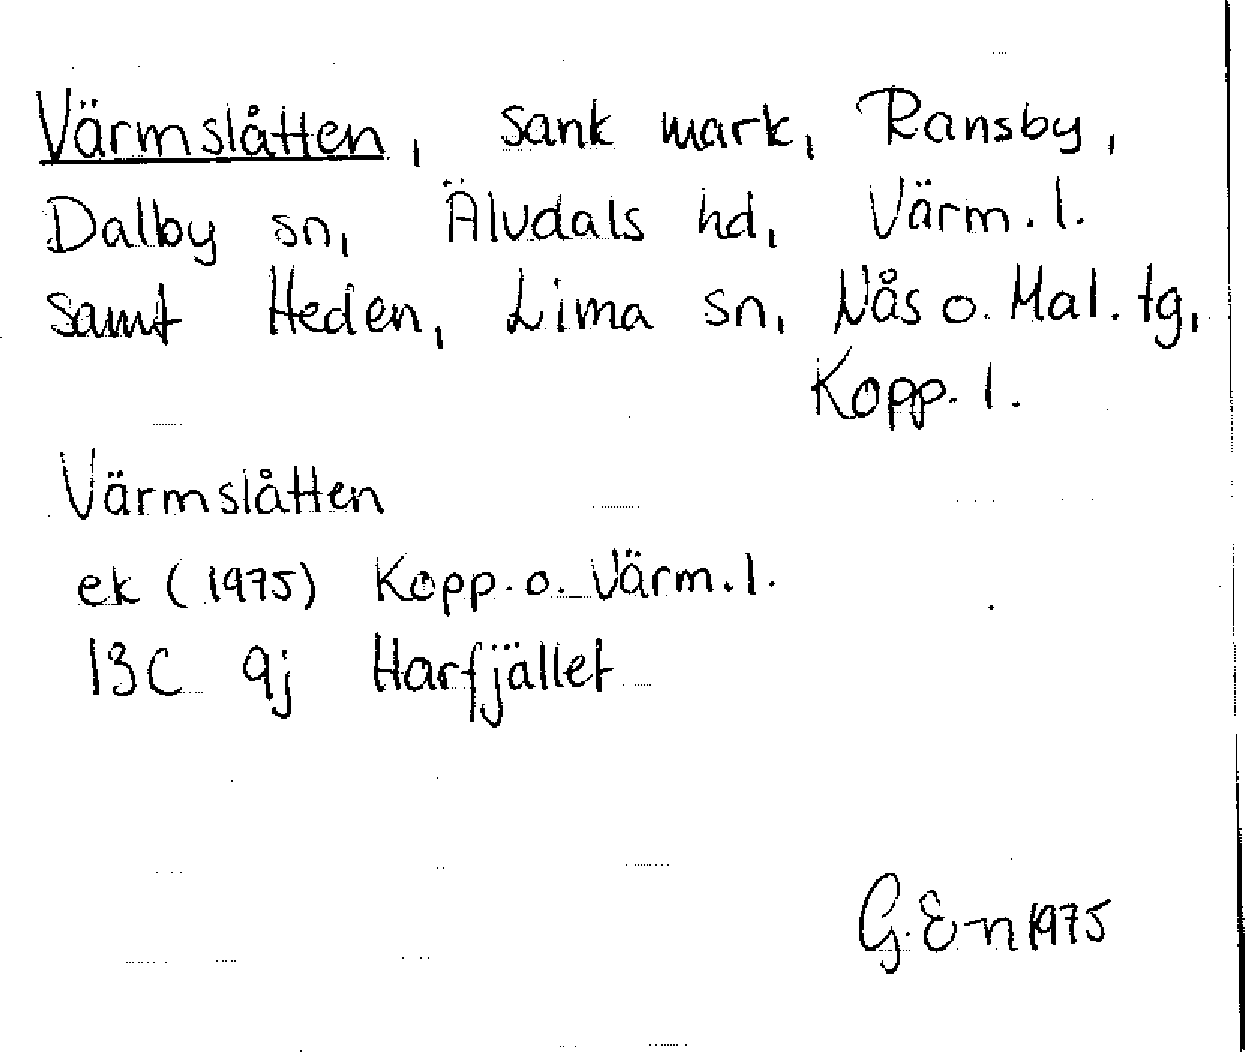 Värmslåtten, sank mark, Ransby,
Dalby sn, Älvdals hd, Värm. l.
samt Heden, Lima sn, Nås o. Mal. tg,
Kopp. l.
Värmslåtten
ek (1975) Kopp. o. Värm. l.
13C 9j Harfjället
G. E-n 1975